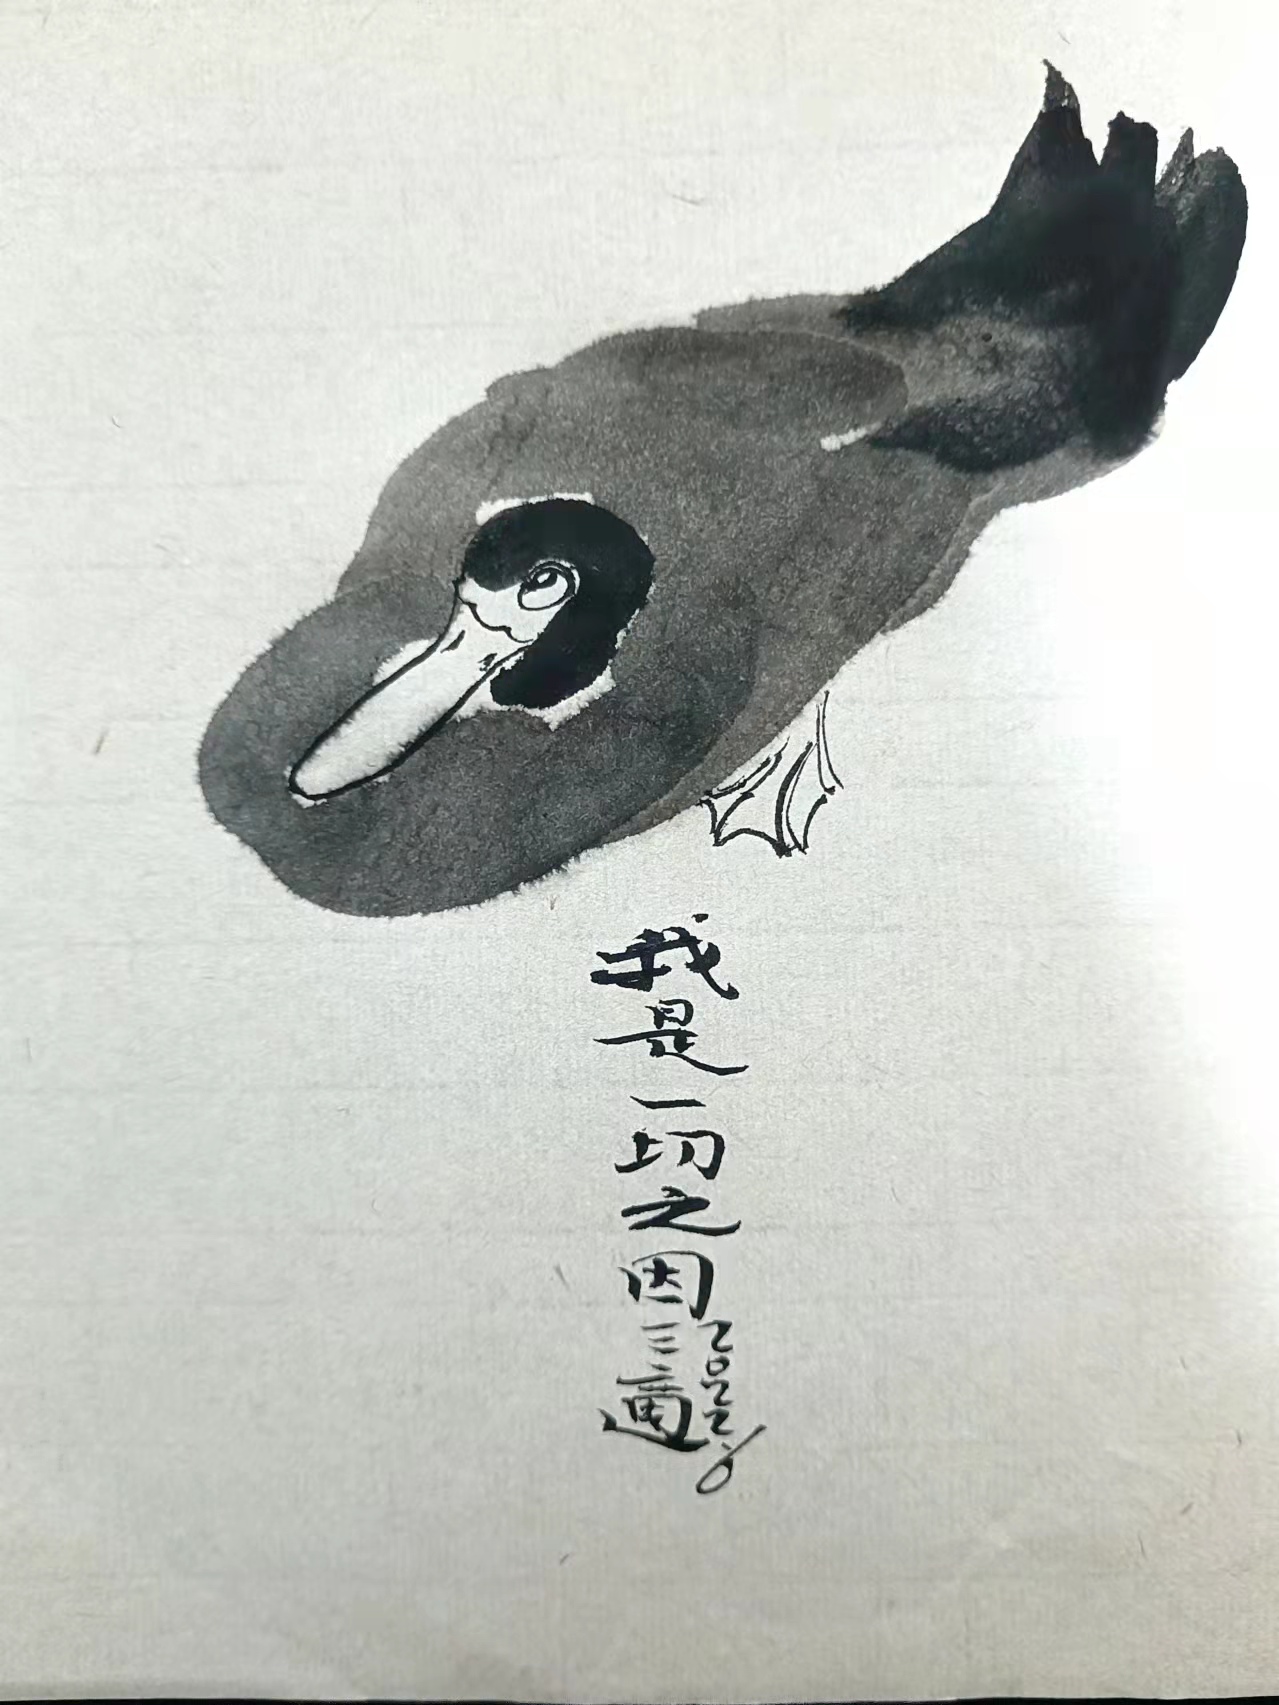 我是一切之因
三適
2022.6